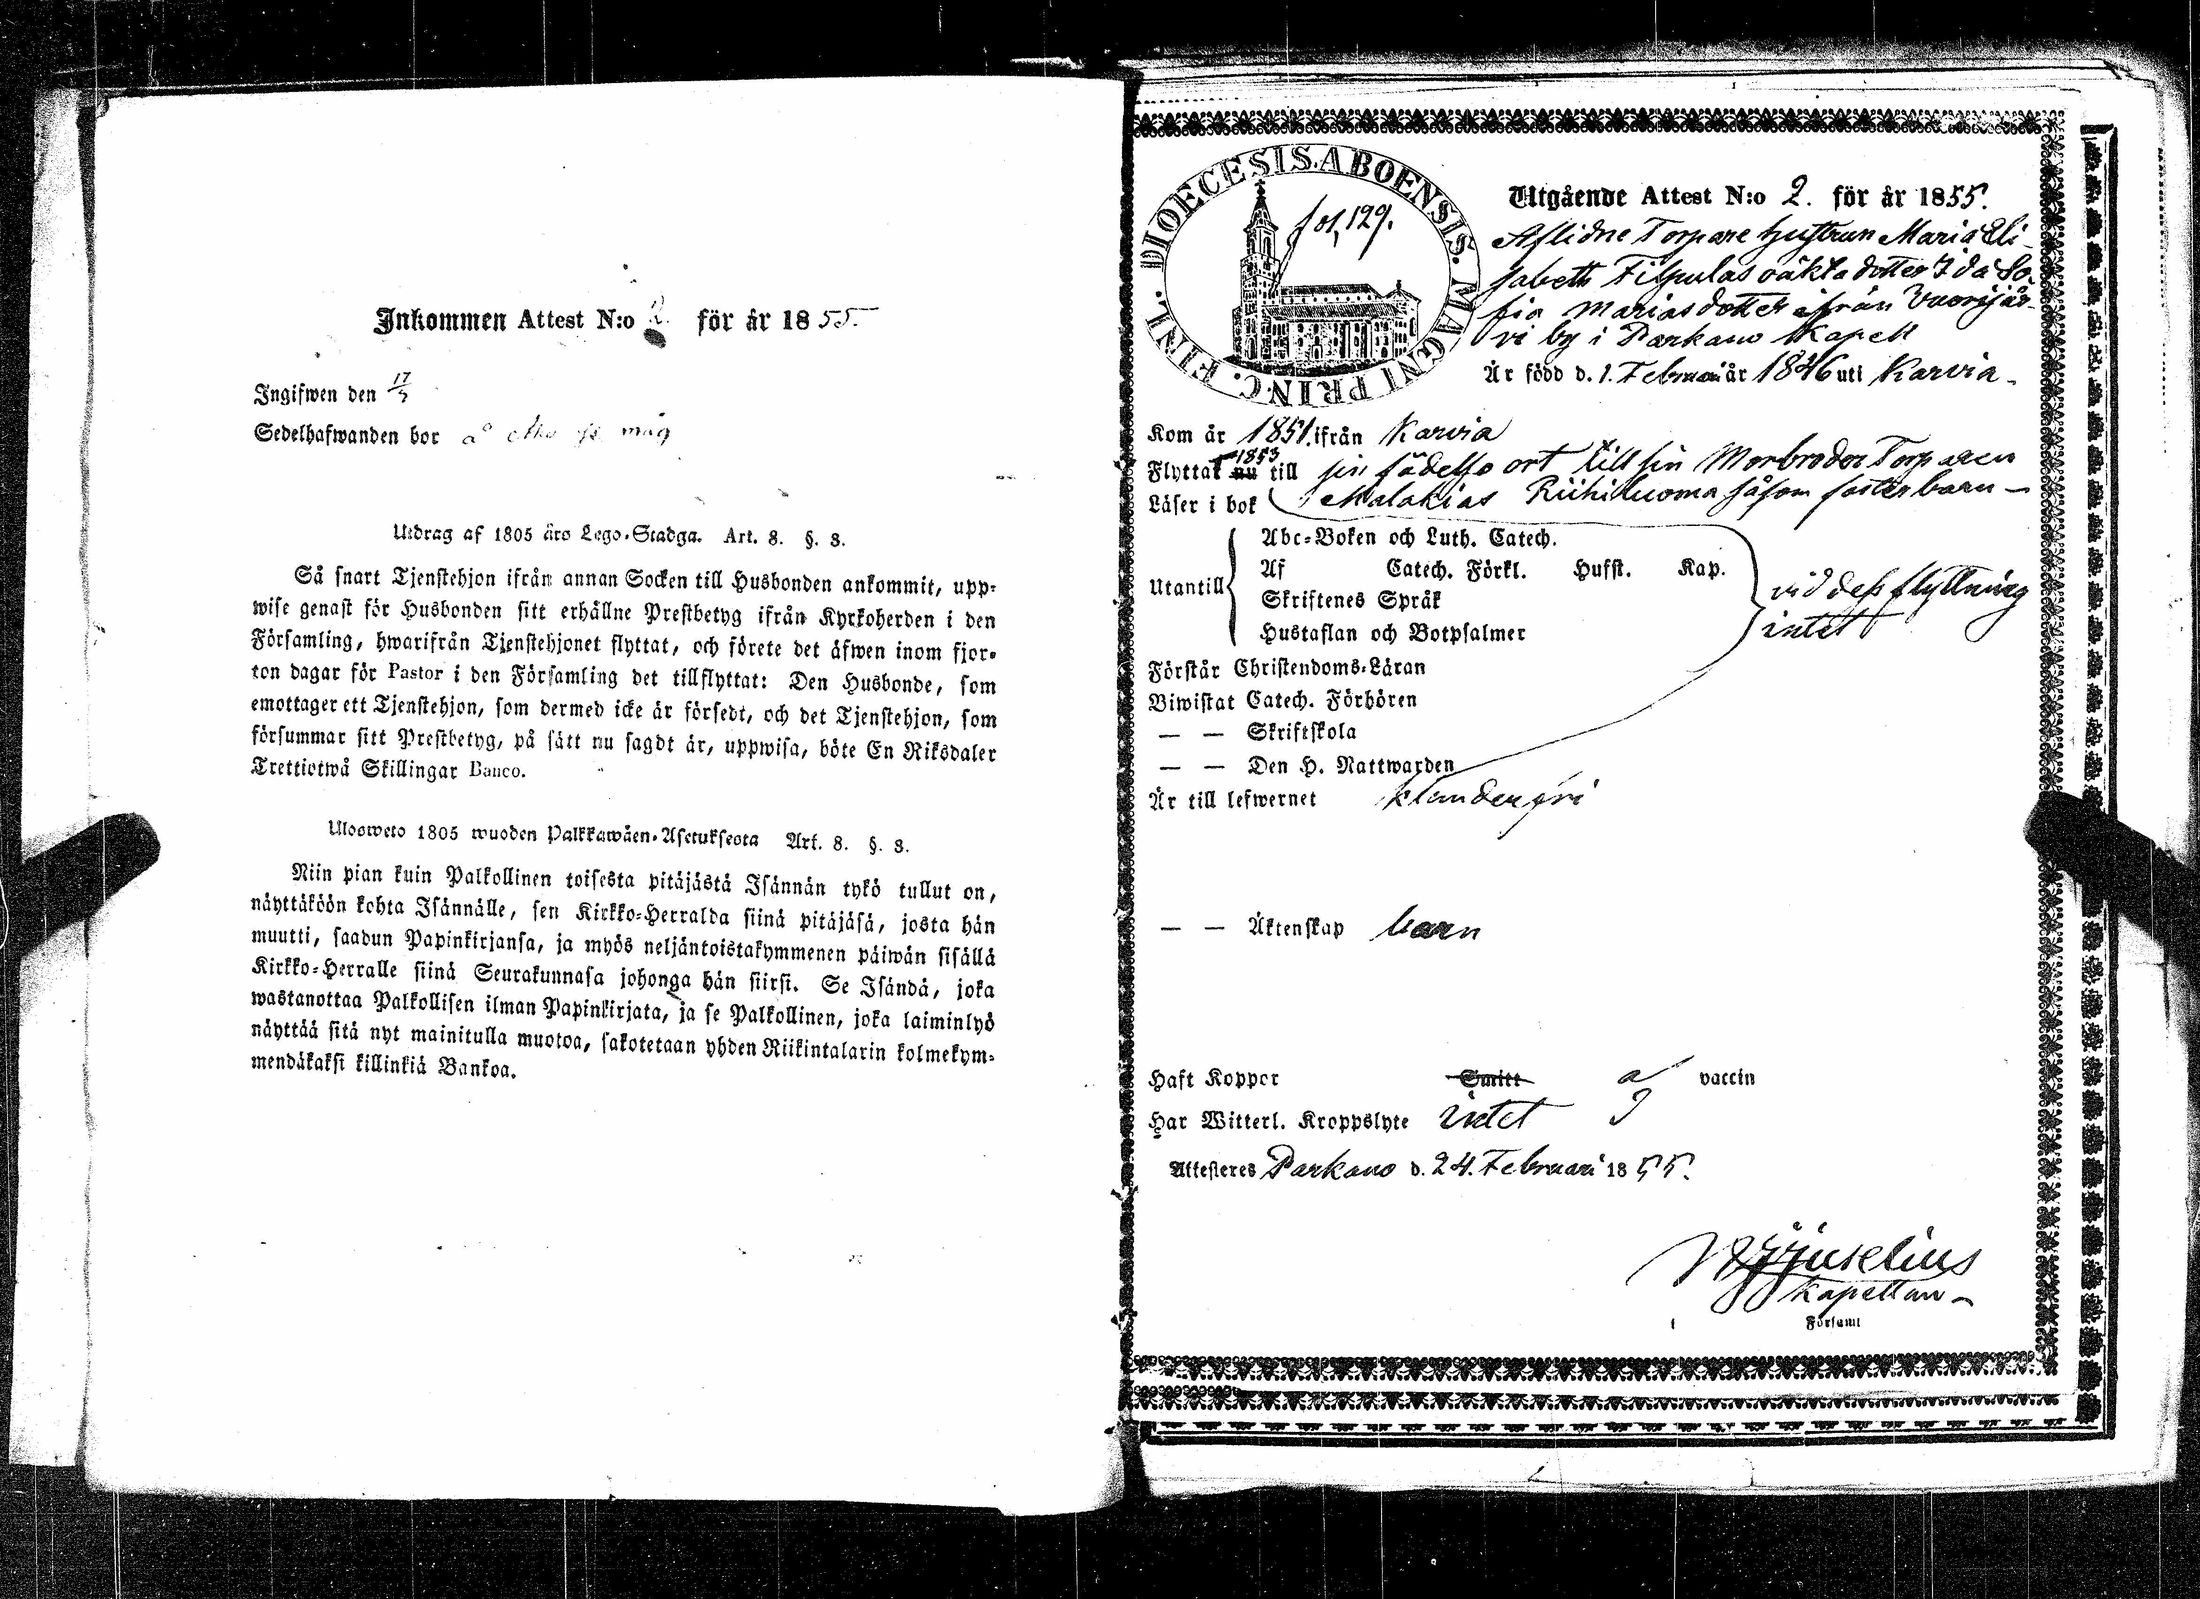 Inkommen Attest N:o 2. för år 1855.
Ingifwen den 17/3
Sedelhafwanden bor å
Utdrag af 1805 års Lego-Stadga. Art. 8. §. 3.
Så snart Tjenstehjon ifrån annan Socken till Husbonden ankommit, upp-
wise genast för Husbonden sitt erhållne Prestbetyg ifrån Kyrkoherden i den
Församling, hwarifrån Tjenstehjonet flyttat, och förete det äfwen inom fjor-
ton dagar för Pastor i den Församling det tillflyttat: Den Husbonde, som
emottager ett Tjenstehjon, som dermed icke är försedt, och det Tjenstehjon, som
försummar sitt Prestbetyg, på sätt nu sagdt är, uppwisa, böte En Riksdaler
Trettiotwå Skillingar Banco.
Ulosweto 1805 wuoden Palkkawäen-Asetuksesta Art. 8. §. 3.
Niin pian kuin Palkollinen toisesta pitäjästä Isännän tykö tullut on,
näyttäköön kohta Isännälle, sen Kirkko-Herralda siinä pitäjäsä, josta hän
muutti, saadun Papinkirjansa, ja myös neljäntoistakymmenen päiwän sisällä
Kirkko-Herralle siinä Seurakunnasa johonga hän siirsi. Se Isändä, joka
wastanottaa Palkollisen ilman Papinkirjata, ja se Palkollinen, joka laiminlyö
näyttää sitä nyt mainitulla muotoa, sakotetaan yhden Riikintalarin kolmekym-
mendäkaksi killinkiä Bankoa.
DIOECESIS ABOENSIS. MAGNI PRINC. FINL.
fol, 129.
Utgående Attest N:o 2. för år 1855.
Aflidne Torpare hustrun Maria Eli-
sabeth Filpulas oäkta dotter Ida So-
fia Mariasdotter ifrån Vuorijär-
vi by i Parkano Kapell
Är född d. 1. Februari år 1846 uti Karvia.
Kom år 1851. ifrån Karvia
1853
Flyttat nu till sin födelse ort till sin Morbroder Torparen
Läser i bok Malakias Riihiluoma såsom fosterbarn
Utantill
Abc-Boken och Luth. Catech.
Af Catech. Förkl. Hufst. Kap.
Skriftenes Språk
Hustaflan och Botpsalmer
vid dess flyttning
intet
Förstår Christendoms-Läran
Biwistat Catech. Förhören
— — Skriftskola
— — Den H. Nattwarden
Är till lefwernet klanderfri
— — Äktenskap barn
Haft Koppor Smitt af vaccin
Har Witterl. Kroppslyte intet
Attesteres Parkano d. 24. Februari 1855.
Juselius
Kapellan
Församl